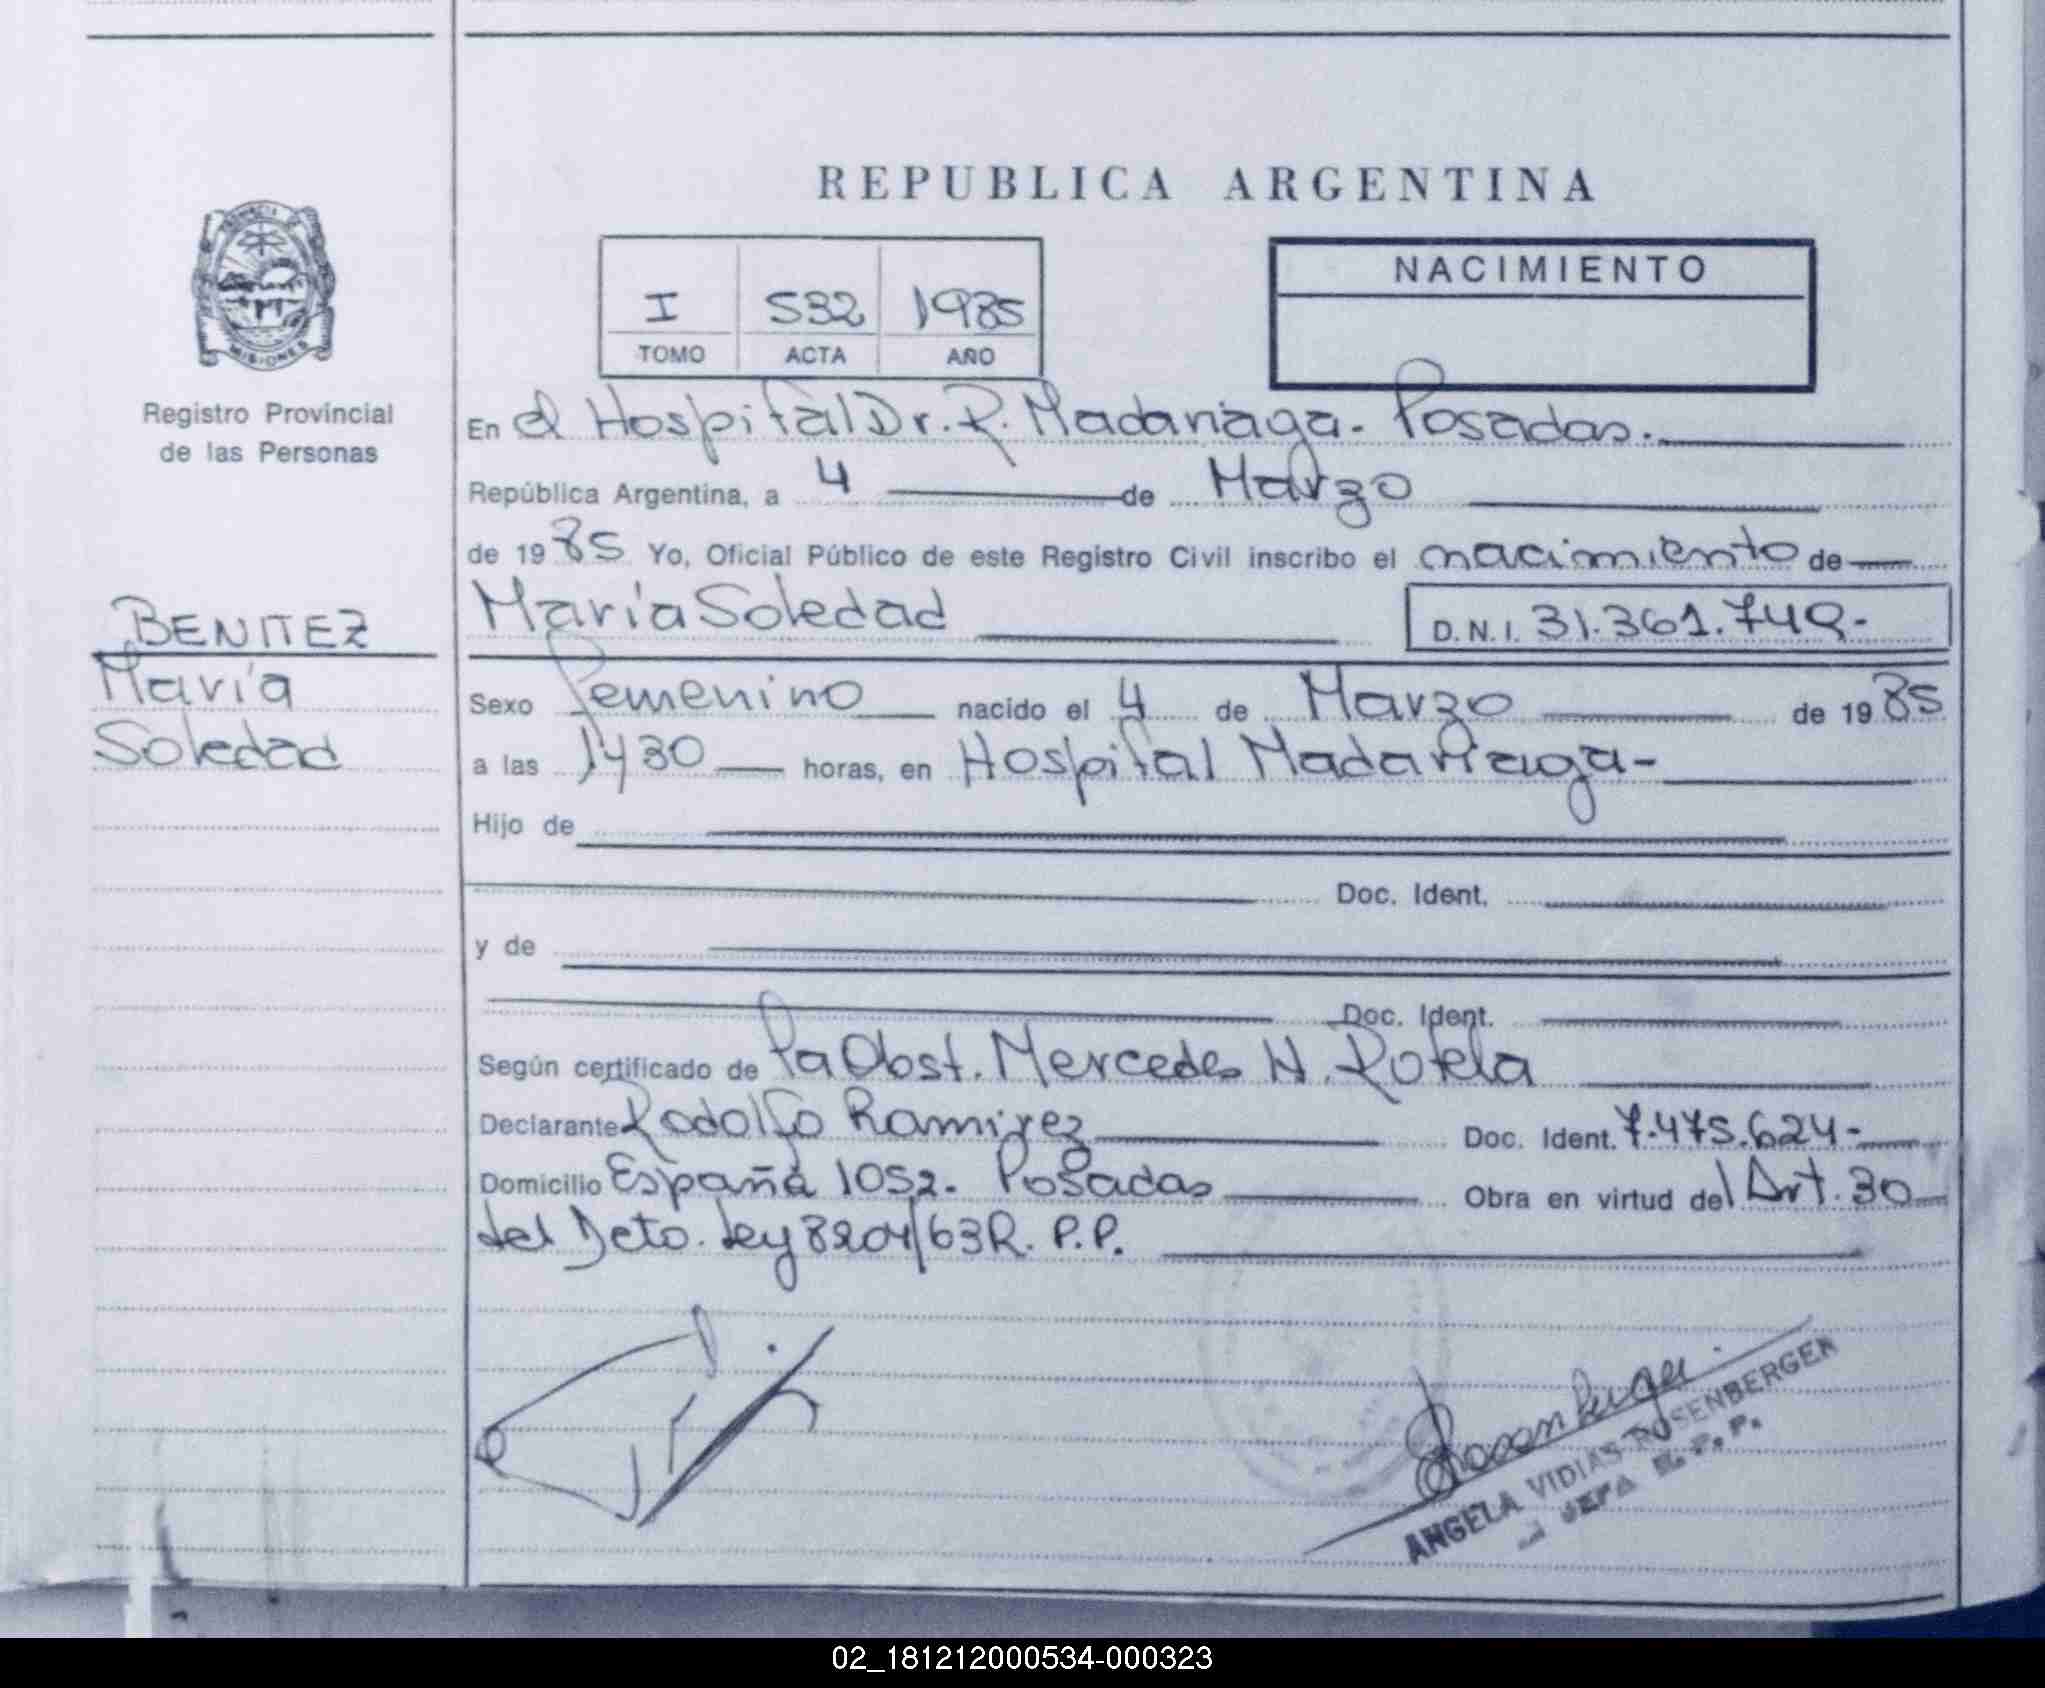 REPUBLICA ARGENTINA
PROVINCIA DE
MISIONES
Registro Provincial
de las Personas
I 532 1985
TOMO ACTA AÑO
NACIMIENTO
En el Hospital Dr. R. Madariaga. Posadas.
República Argentina, a 4 de Marzo
de 1985 Yo, Oficial Público de este Registro Civil inscribo el nacimiento de
BENITEZ
María
Soledad
María Soledad D.N.I. 31.361.749.-
Sexo Femenino nacido el 4 de Marzo de 1985
a las 1430 horas, en Hospital Madariaga-
Hijo de
Doc. Ident.
y de
Doc. Ident.
Según certificado de Pa Obst. Mercedes N. Rotela
Declarante Rodolfo Ramirez Doc. Ident. 7.475.624-
Domicilio España 1052. Posadas Obra en virtud del Art. 30
del Dcto. Ley 8204/63 R. P.P.
Rosenberger
ANGELA VIDIAS ROSENBERGER
JEFA R. P. P.
02_181212000534-000323